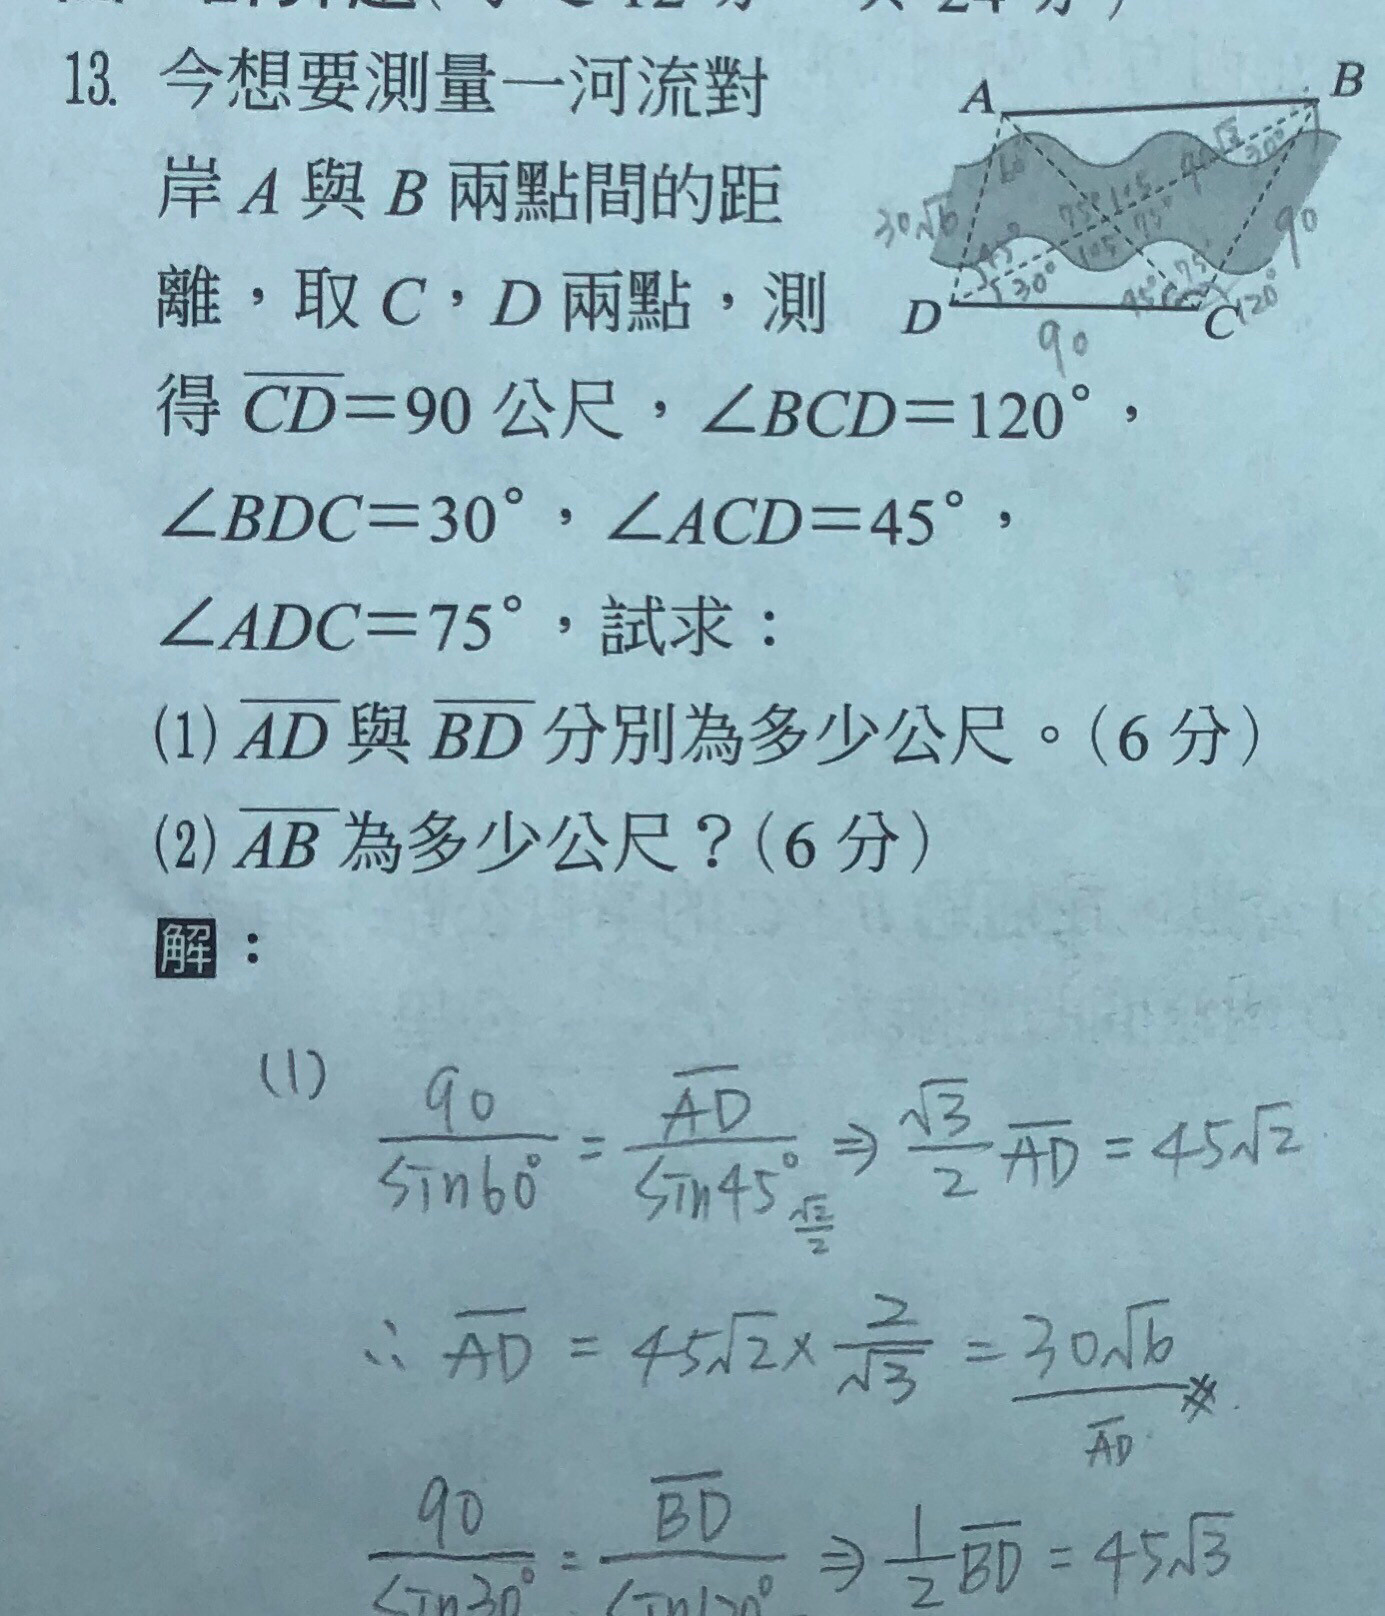 13. 今想要測量一河流對
岸 A 與 B 兩點間的距
離，取 C，D 兩點，測
得 CD=90 公尺，∠BCD=120°，
∠BDC=30°，∠ACD=45°，
∠ADC=75°，試求：
(1) AD 與 BD 分別為多少公尺。(6 分)
(2) AB 為多少公尺？(6 分)
A
B
30√6
60
75°
105
75°
90√3
30°
90
45°
30°
105
45°
75°
120°
D
C
90
解：
(1) 90/sin60° = AD/sin45° ⇒ √3/2 AD = 45√2
√2/2
∴ AD = 45√2 × 2/√3 = 30√6
AD
90/sin30° = BD/sin120° ⇒ 1/2 BD = 45√3